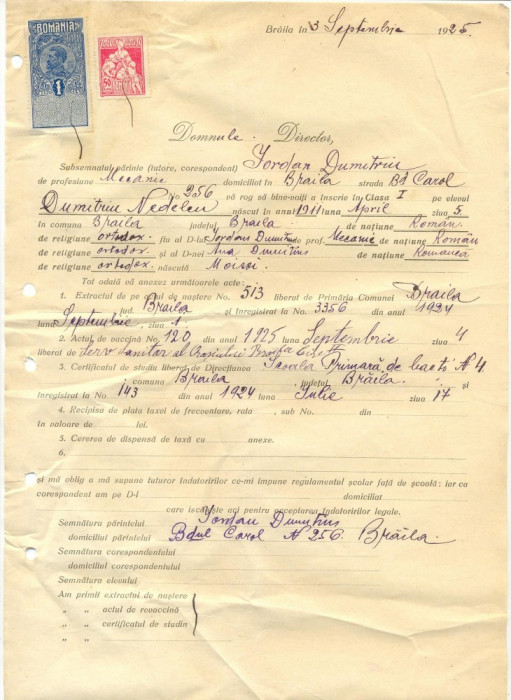 ROMANIA
1
Brăila în 3 Septembrie 1925.
Domnule Director,
Subsemnatul părinte (tutore, corespondent) Iordan Dumitriu
de profesiune Mecanic domiciliat în Braila strada Bd Carol
No 256 vă rog să bine-voiți a înscrie în Clasa I pe elevul
Dumitriu Nedelcu născut în anul 1911 luna April ziua 5
în comuna Braila județul Braila de națiune Român
de religiune ortodox. fiu al D-lui Iordan Dumitriu de prof. Mecanic de națiune Român
de religiune ortodox. și al D-nei Ana Dumitriu de națiune Romanca
de religiune ortodox. născută Moisoi.
Tot odată vă anexez următoarele acte:
1. Extractul de pe actul de naștere No. 513 liberat de Primăria Comunei Braila
jud. Braila și înregistrat la No. 3356 din anul 1924
luna Septembrie, ziua 1.
2. Actul de vaccină No 120 din anul 1925 luna Septembrie ziua 4
liberat de Serv. Sanitar al Orașului
3. Certificatul de studiu liberat de Direcțiunea Scoala Primară de baeti N 4
comuna Braila, județul Brăila.
înregistrat la No. 143 din anul 1924 luna Iulie ziua 17
4. Recipisa de plata taxei de frecuentare, rata , sub No. din
în valoare de lei.
5. Cererea de dispensă de taxă cu anexe.
6.
și mă oblig a mă supune tuturor îndatoririlor ce-mi impune regulamentul școlar față de școală: iar ca
corespondent am pe D-l domiciliat
care iscălește aci pentru acceptarea îndatoririlor legale.
Semnătura părintelui Iordan Dumitriu
domiciliul părintelui Bdul Carol N 256. Brăila.
Semnătura corespondentului
domiciliul corespondentului
Semnătura elevului
Am primit extractul de naștere
„ „ actul de revaccină
„ „ certificatul de studiu
„ „